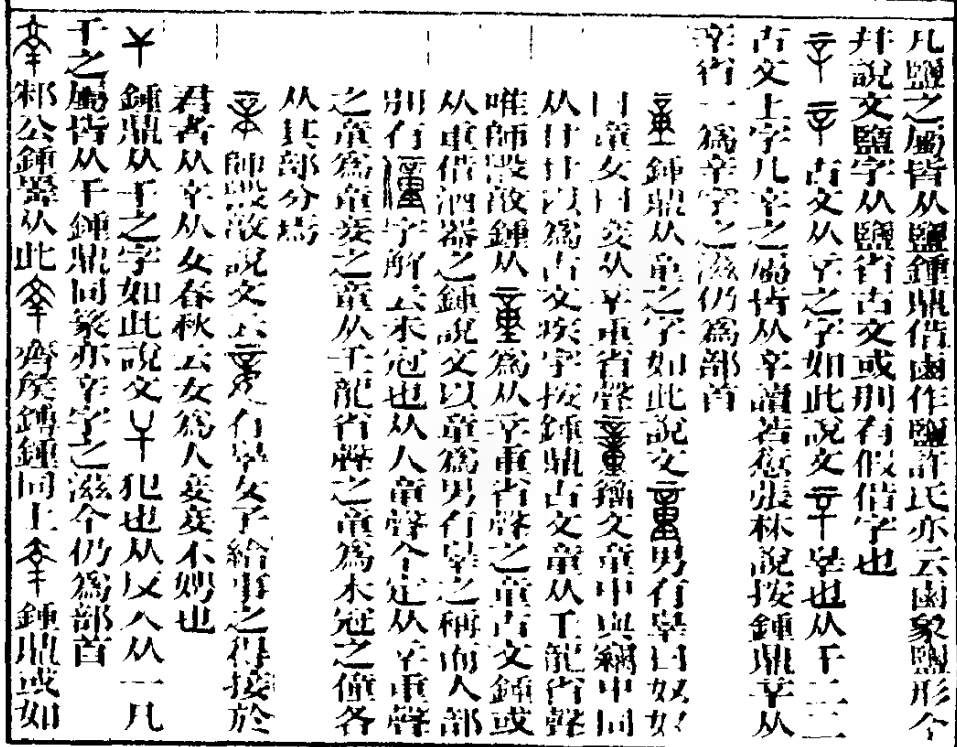 凡鹽之屬皆从鹽鍾鼎借鹵作鹽許氏亦云鹵象鹽形今
幷說文鹽字从鹽省古文或別有假借字也
古文从䇂之字如此說文䇂辠也从干二二
古文上字凡䇂之屬皆从䇂讀若愆張林說按鍾鼎䇂从
辛省一爲辛字之滋仍爲部首
鍾鼎从童之字如此說文童男有辠曰奴奴
曰童女曰妾从䇂重省聲籒文童中與竊中同
从廿廿以爲古文疾字按鍾鼎古文童从䇂龍省聲
唯師𣪘敦鍾从爲从䇂重省聲之童古文鍾或
从重借酒器之鍾說文以童爲男有辠之稱而人部
別有僮字解云未冠也从人童聲今定从䇂重聲
之童爲童妾之童从䇂龍省聲之童爲未冠之僮各
从其部分焉
師𣪘敦說文云妾有辠女子給事之得接於
君者从䇂从女春秋云女爲人妾妾不娉也
鍾鼎从干之字如此說文干犯也从反入从一凡
干之屬皆从干鍾鼎同篆亦辛字之滋今仍爲部首
邾公鍾從此齊侯鎛鍾同上鍾鼎或如